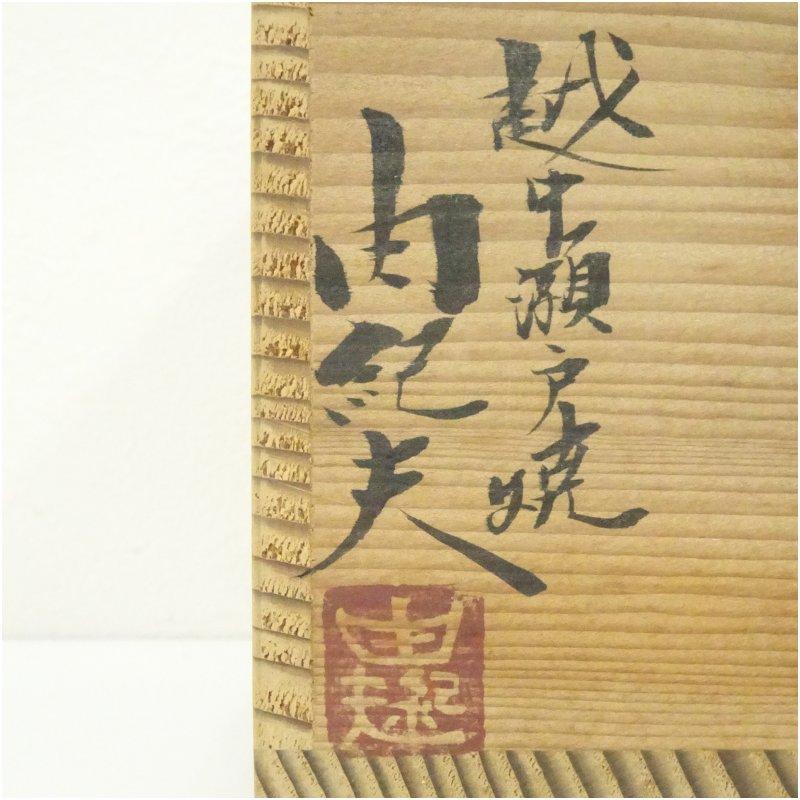 越中瀬戸焼
由紀夫
由紀夫